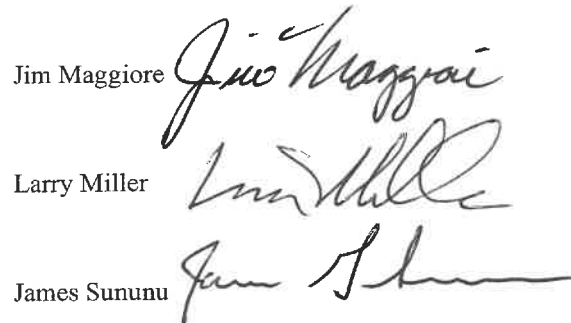 Jim Maggiore Jim Maggiore
Larry Miller Larry Miller
James Sununu James Sununu